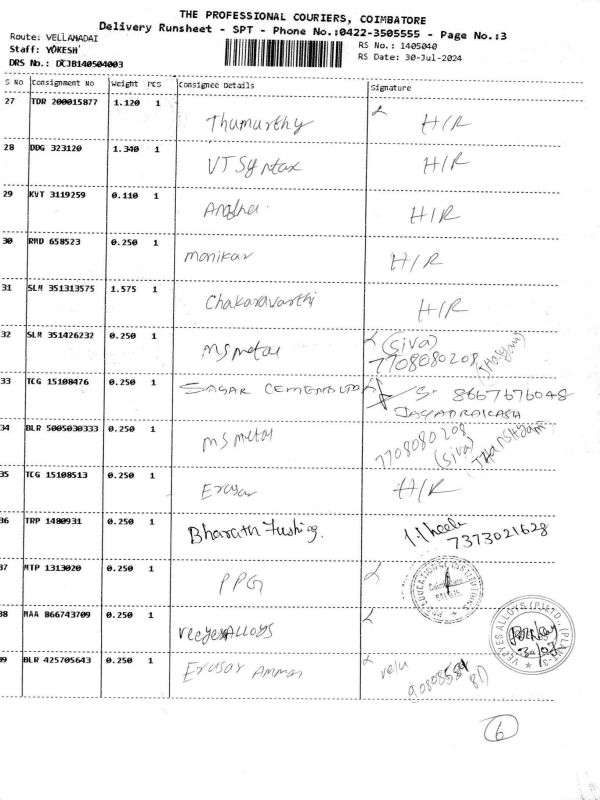 THE PROFESSIONAL COURIERS, COIMBATORE
Delivery Runsheet - SPT - Phone No.:0422-3505555 - Page No.:3
Route: VELLAMADAI
RS No.: 1405040
Staff: YOKESH
RS Date: 30-Jul-2024
DRS No.: DCJB140504003
S No Consignment No Weight PCS Consignee Details Signature
27 TDR 200015877 1.120 1 Thamurthy H/R
28 DDG 323120 1.340 1 VTSyntax H/R
29 KVT 3119259 0.110 1 H/R
30 RMD 658523 0.250 1 monikar H/R
31 SLM 351313575 1.575 1 Chakaravarthi H/R
32 SLM 351426232 0.250 1 msmetal (Siva)
7708080208
33 TCG 15108476 0.250 1 SAGAR CEMENTS LTD S. 8667676048
JAYAPRAKASH
34 BLR 5005030333 0.250 1 msmetal 7708080208
(Siva)
35 TCG 15108513 0.250 1 H/R
36 TRP 1480931 0.250 1 Bharath
7373021628
37 MTP 1313020 0.250 1 PPG
38 MAA 866743709 0.250 1 veeyes ALLOYS
VEEYES ALLOYS (P) LTD., (PLANT-3)
39 BLR 425705643 0.250 1 Amman velu
6